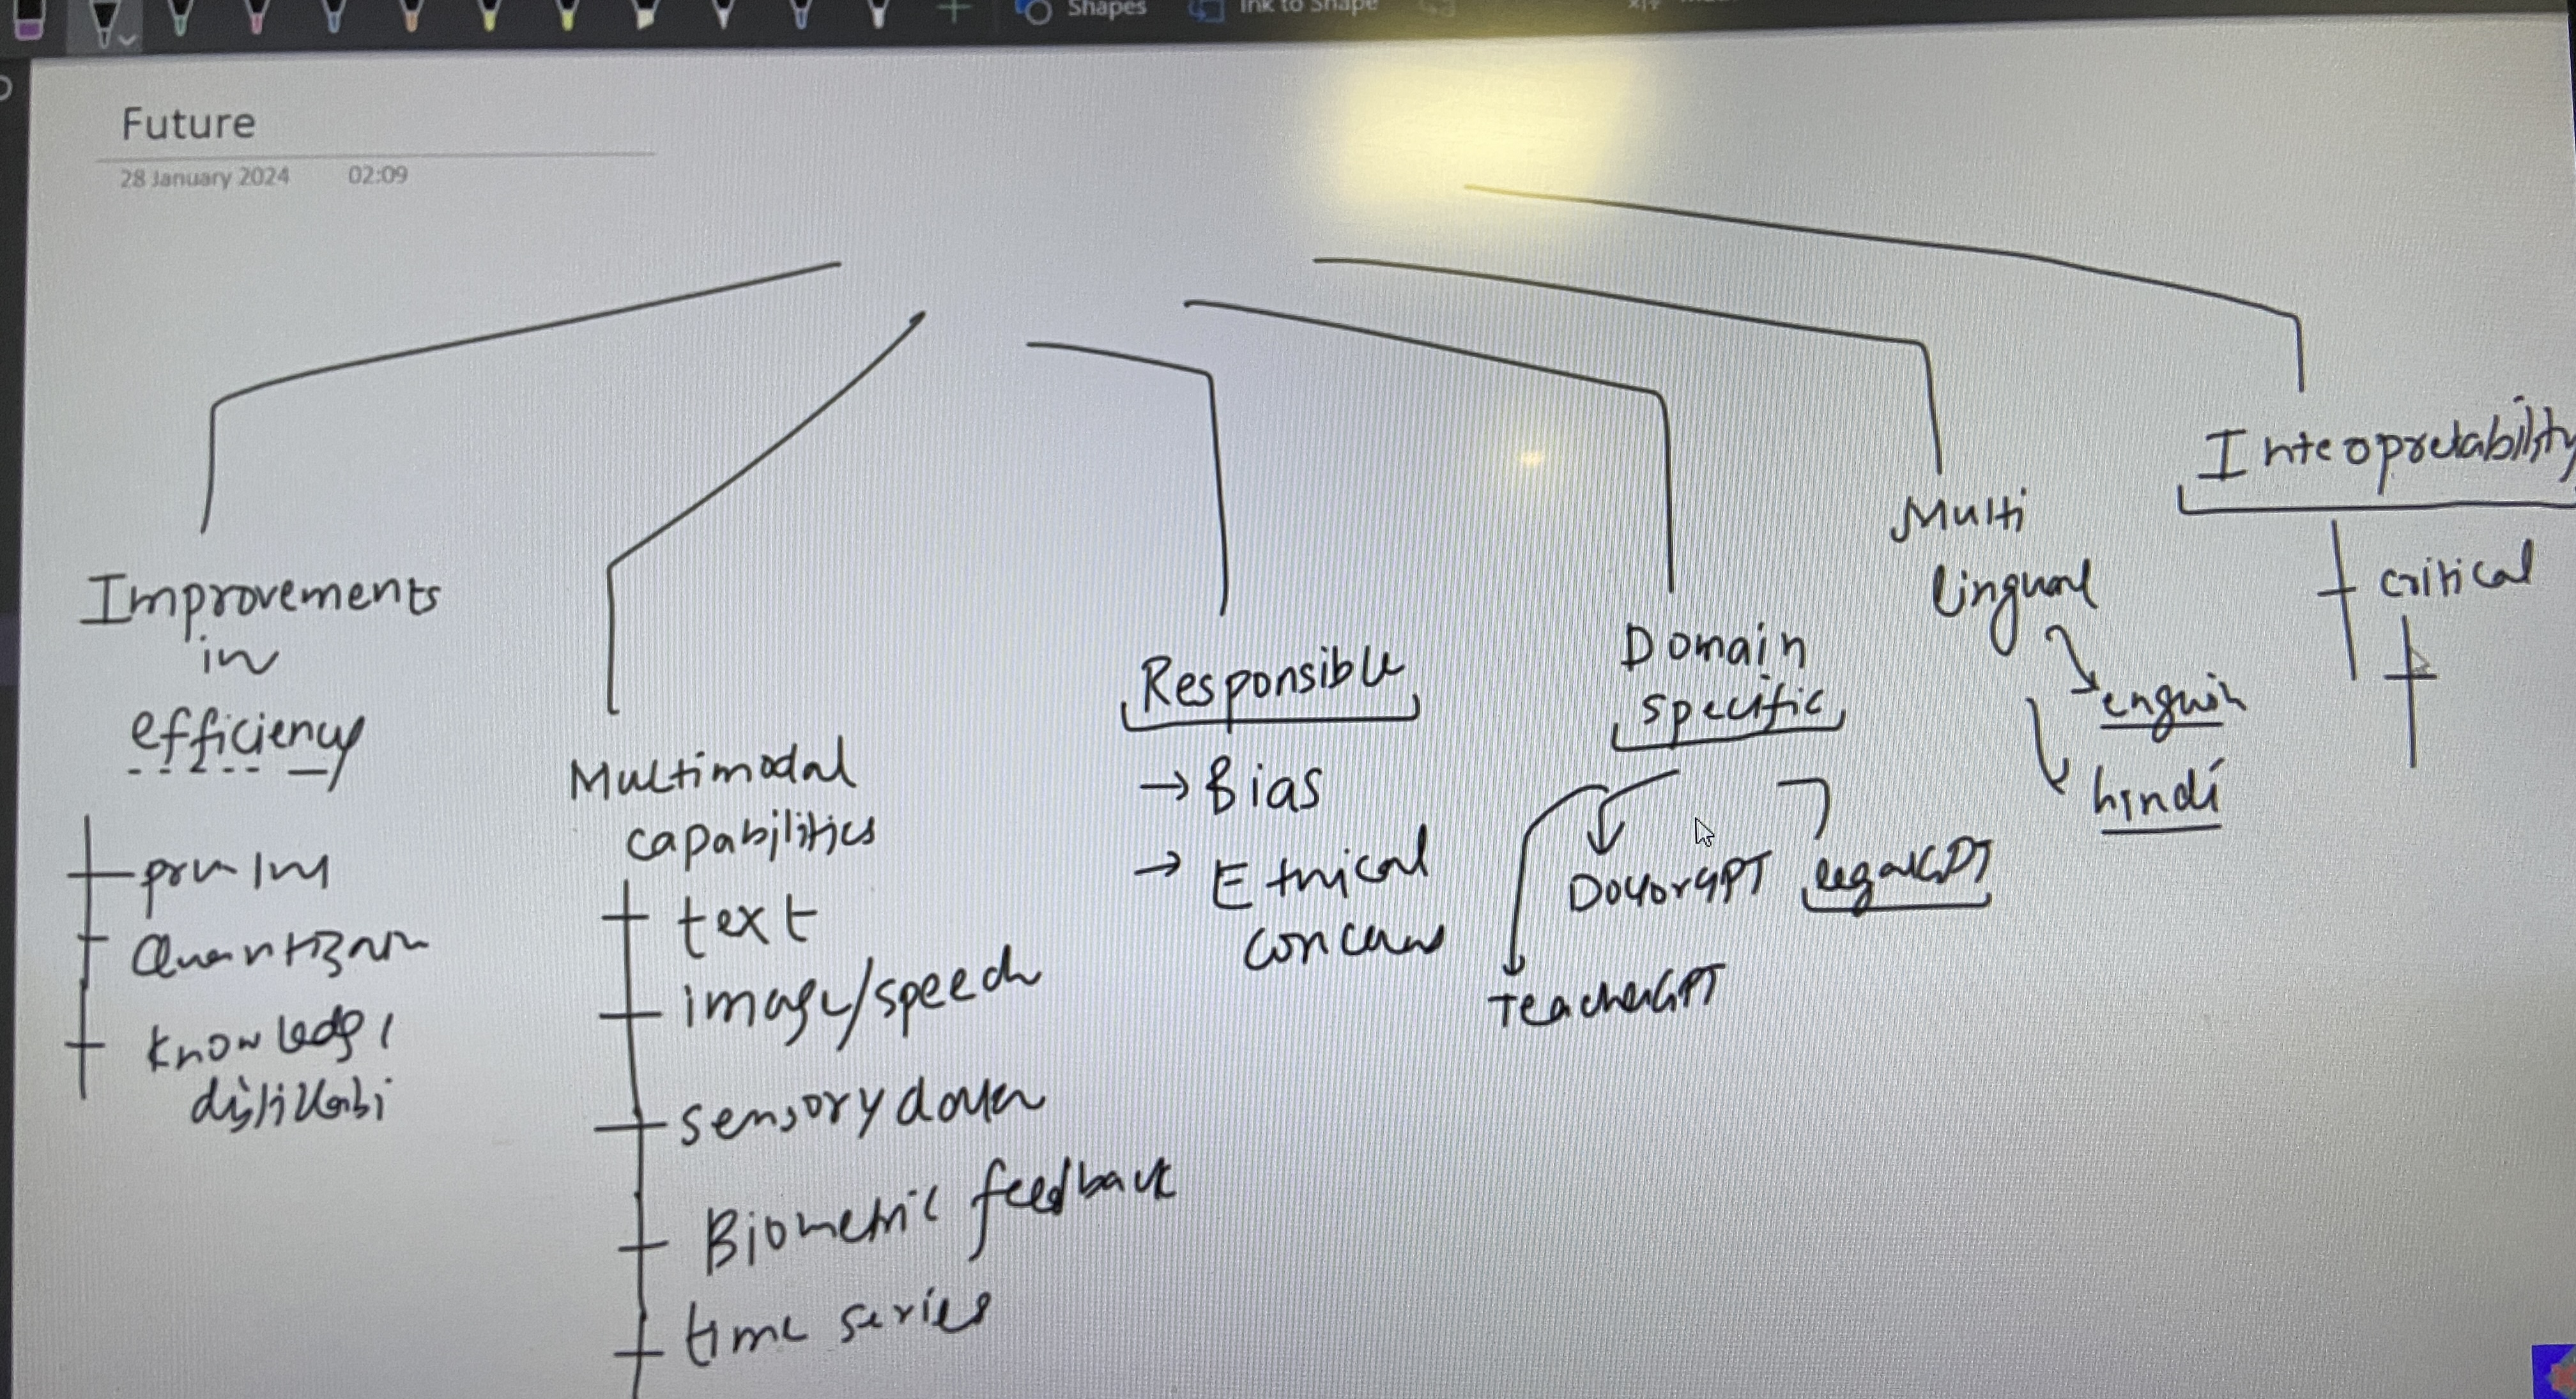 Shapes
Ink to Shape
Future
28 January 2024 02:09
Improvements
in
efficiency
Quantization
knowledge
Multimodal
capabilities
text
image/speech
sensory data
Biometric feedback
time series
Responsible
→ Bias
→ Ethical
concerns
Domain
specific
DoctorGPT
legalGPT
TeacherGPT
Multi
lingual
hindi
Interpretability
critical